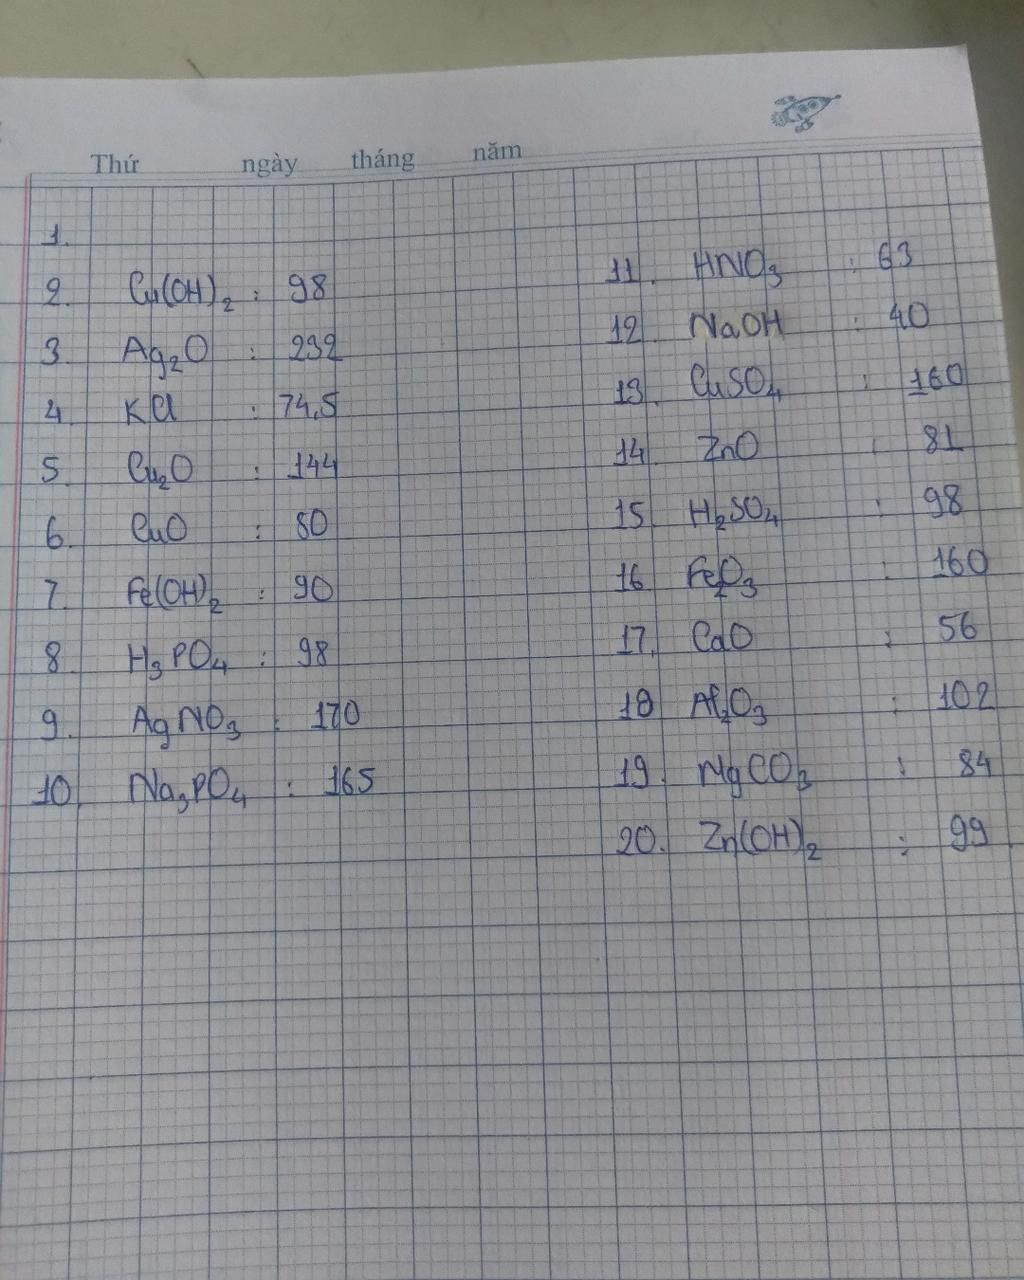 Thứ ngày tháng năm
1.
2. Cu(OH)₂ : 98
3. Ag₂O : 232
4. KCl : 74,5
5. Cu₂O : 144
6. CuO : 80
7. Fe(OH)₂ : 90
8. H₃PO₄ : 98
9. AgNO₃ : 170
10. Na₃PO₄ : 165
11. HNO₃ : 63
12. NaOH : 40
13. CuSO₄ : 160
14. ZnO : 81
15. H₂SO₄ : 98
16. Fe₂O₃ : 160
17. CaO : 56
18. Al₂O₃ : 102
19. MgCO₃ : 84
20. Zn(OH)₂ : 99